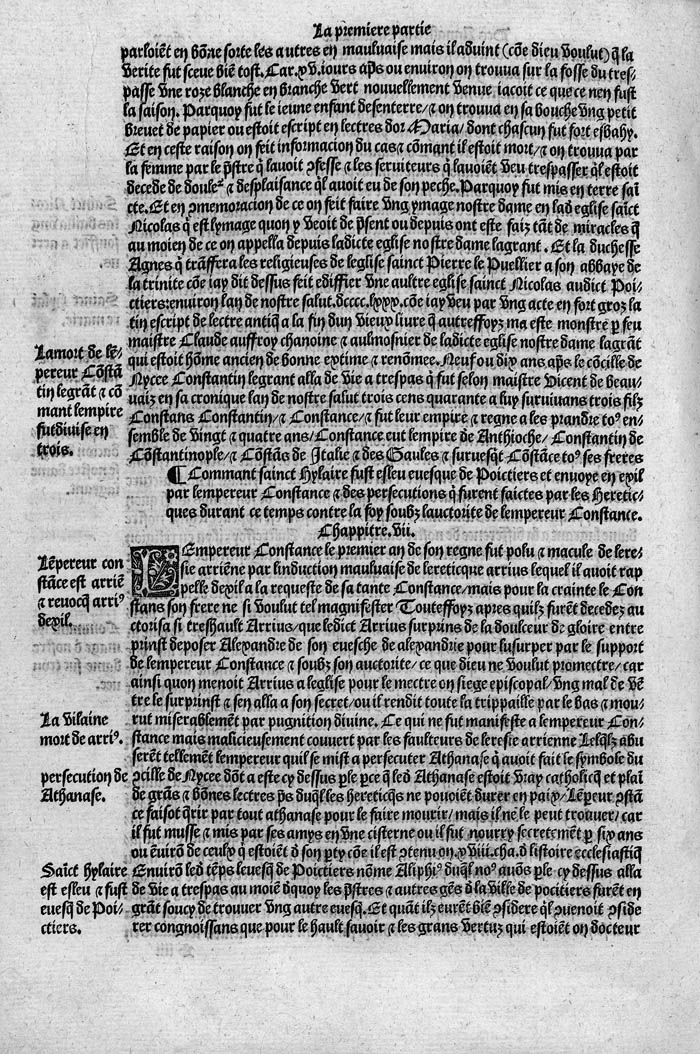 La premiere partie
parloiẽt en bõne sorte les autres en mauluaise mais il aduint (cõe dieu voulut) q̃ la
verite fut sceue biẽ tost. Car .xv. iours ap̃s ou enuiron on trouua sur la fosse du tres-
passe vne roze blanche en branche vert nouuellement venue iacoit ce que ce nen fust
la saison. Parquoy fut le ieune enfant desenterre/ ⁊ on trouua en sa bouche vng petit
breuet de papier ou estoit escript en lectres dor Maria/ dont chascun fut fort esbahy.
Et en ceste raison on feit informacion du cas ⁊ cõmant il estoit mort/ ⁊ on trouua par
la femme par le p̃stre q̃ lauoit ɔfesse ⁊ les seruiteurs q̃ lauoiẽt veu trespasser q̃l estoit
decede de douleᵘʳ ⁊ desplaisance q̃l auoit eu de son peche. Parquoy fut mis en terre sai
cte. Et en ɔmemoracion de ce on feit faire vng ymage nostre dame en lad̃ eglise saĩct
Nicolas q̃ est lymage quon y veoit de p̃sent ou depuis ont este faiz tãt de miracles q̃
au moien de ce on appella depuis ladicte eglise nostre dame lagrant. Et la duchesse
Agnes q̃ trãsfera les religieuses de leglise sainct Pierre le Puellier a son abbaye de
la trinite cõe iay dit dessus feit ediffier vne aultre eglise sainct Nicolas audict Poi-
ctiers: enuiron lan de nostre salut. dcccc. lxxx. cõe iay veu par vng acte en fort groz la
tin escript de lectre antiq̃ a la fin dun vieux liure q̃ autreffoyz ma este monstre p̱ feu
maistre Claude auffroy chanoine ⁊ aulmosnier de ladicte eglise nostre dame lagrãt
qui estoit hõme ancien de bonne extime ⁊ renõmee. Neuf ou dix ans ap̃s le cõcille de
Nycee Constantin legrant alla de vie a trespas q̃ fut selon maistre Vicent de beau-
uaiz en sa cronique lan de nostre salut trois cens quarante a luy suruiuans trois filz
Constans Constantin/ ⁊ Constance/ ⁊ fut leur empire ⁊ regne a les prandre toꝰ en-
semble de vingt ⁊ quatre ans/ Constance eut lempire de Anthioche/ Constantin de
Cõstantinople/ ⁊ Cõstãs de Italie ⁊ des Gaules ⁊ suruesq̃t Cõstãce toꝰ ses freres
Lamort de lẽ-
pereur Cõstã
tin legrãt ⁊ cõ
mant lempire
fut diuise en
trois.
¶ Commant sainct Hylaire fust esleu euesque de Poictiers et enuoye en exil
par lempereur Constance ⁊ des persecutions q̃ furent faictes par les Heretic-
ques durant ce temps contre la foy soubz lauctorite de lempereur Constance.
Chappitre. vii.
LEmpereur Constance le premier an de son regne fut polu ⁊ macule de lere-
sie arriẽne par linduction mauluaise de lereticque arrius lequel il auoit rap
pelle dexil a la requeste de sa tante Constance/ mais pour la crainte le Con
stans son frere ne si voulut tel magnifester Touteffoyz apres quilz furẽt decedez au
ctorisa si treshault Arrius/ que ledict Arrius surprins de la doulceur de gloire entre
prinst deposer Alexandre de son euesche de alexandrie pour lusurper par le support
de lempereur Constance ⁊ soubz son auctorite/ ce que dieu ne voulut promectre/ car
ainsi quon menoit Arrius a leglise pour le mectre on siege episcopal/ vng mal de vẽ
tre le surprinst ⁊ sen alla a son secret/ ou il rendit toute la trippaille par le bas ⁊ mou-
rut miserablemẽt par pugnition diuine. Ce qui ne fut manifeste a lempereur Con-
stance mais malicieusement couuert par les faulteurs de leresie arrienne Lesq̃lz abu
serẽt tellemẽt lempereur quil se mist a persecuter Athanase q̃ auoit fait le symbole du
ɔcille de Nycee dõt a este cy dessus p̱le p̱ce q̃ led̃ Athanase estoit vray catholicq̃ et plai
de grãs ⁊ bõnes lectres p̱s duq̃l les hereticq̃s ne pouoiẽt durer en paix/ Lẽpeur ɔstã
ce faisoit q̃rir par tout athanase pour le faire mourir/ mais il ne le peut trouuer/ car
il fut musse ⁊ mis par ses amys en vne cisterne ou il fut nourry secretemẽt p̱ six ans
ou ẽuirõ de ceulx q̃ estoiẽt d̃ son p̱ty cõe il est ɔtenu on .x viii. cha. d̃ listoire ecclesiastiq̃
Enuirõ led̃ tẽps leuesq̃ de Poictiers nõme Aliphiꝰ duq̃l noꝰ auõs p̱le cy dessus alla
de vie a trespas au moiẽ dquoy les p̃stres ⁊ autres gẽs d̃ la ville de pocitiers furẽt en
grãt soucy de trouuer vng autre euesq̃. Et quãt ilz eurẽt biẽ ɔsidere q̃l ɔuenoit ɔside
rer congnoissans que pour le hault sauoir ⁊ les grans vertuz qui estoiẽt on docteur
Lẽpereur con
stãce est arriẽ
⁊ reuocq̃ arriꝰ
dexil.
La vilaine
mort de arriꝰ.
persecution de
Athanase.
Saĩct hylaire
est esleu ⁊ fust
euesq̃ de Poi-
ctiers.